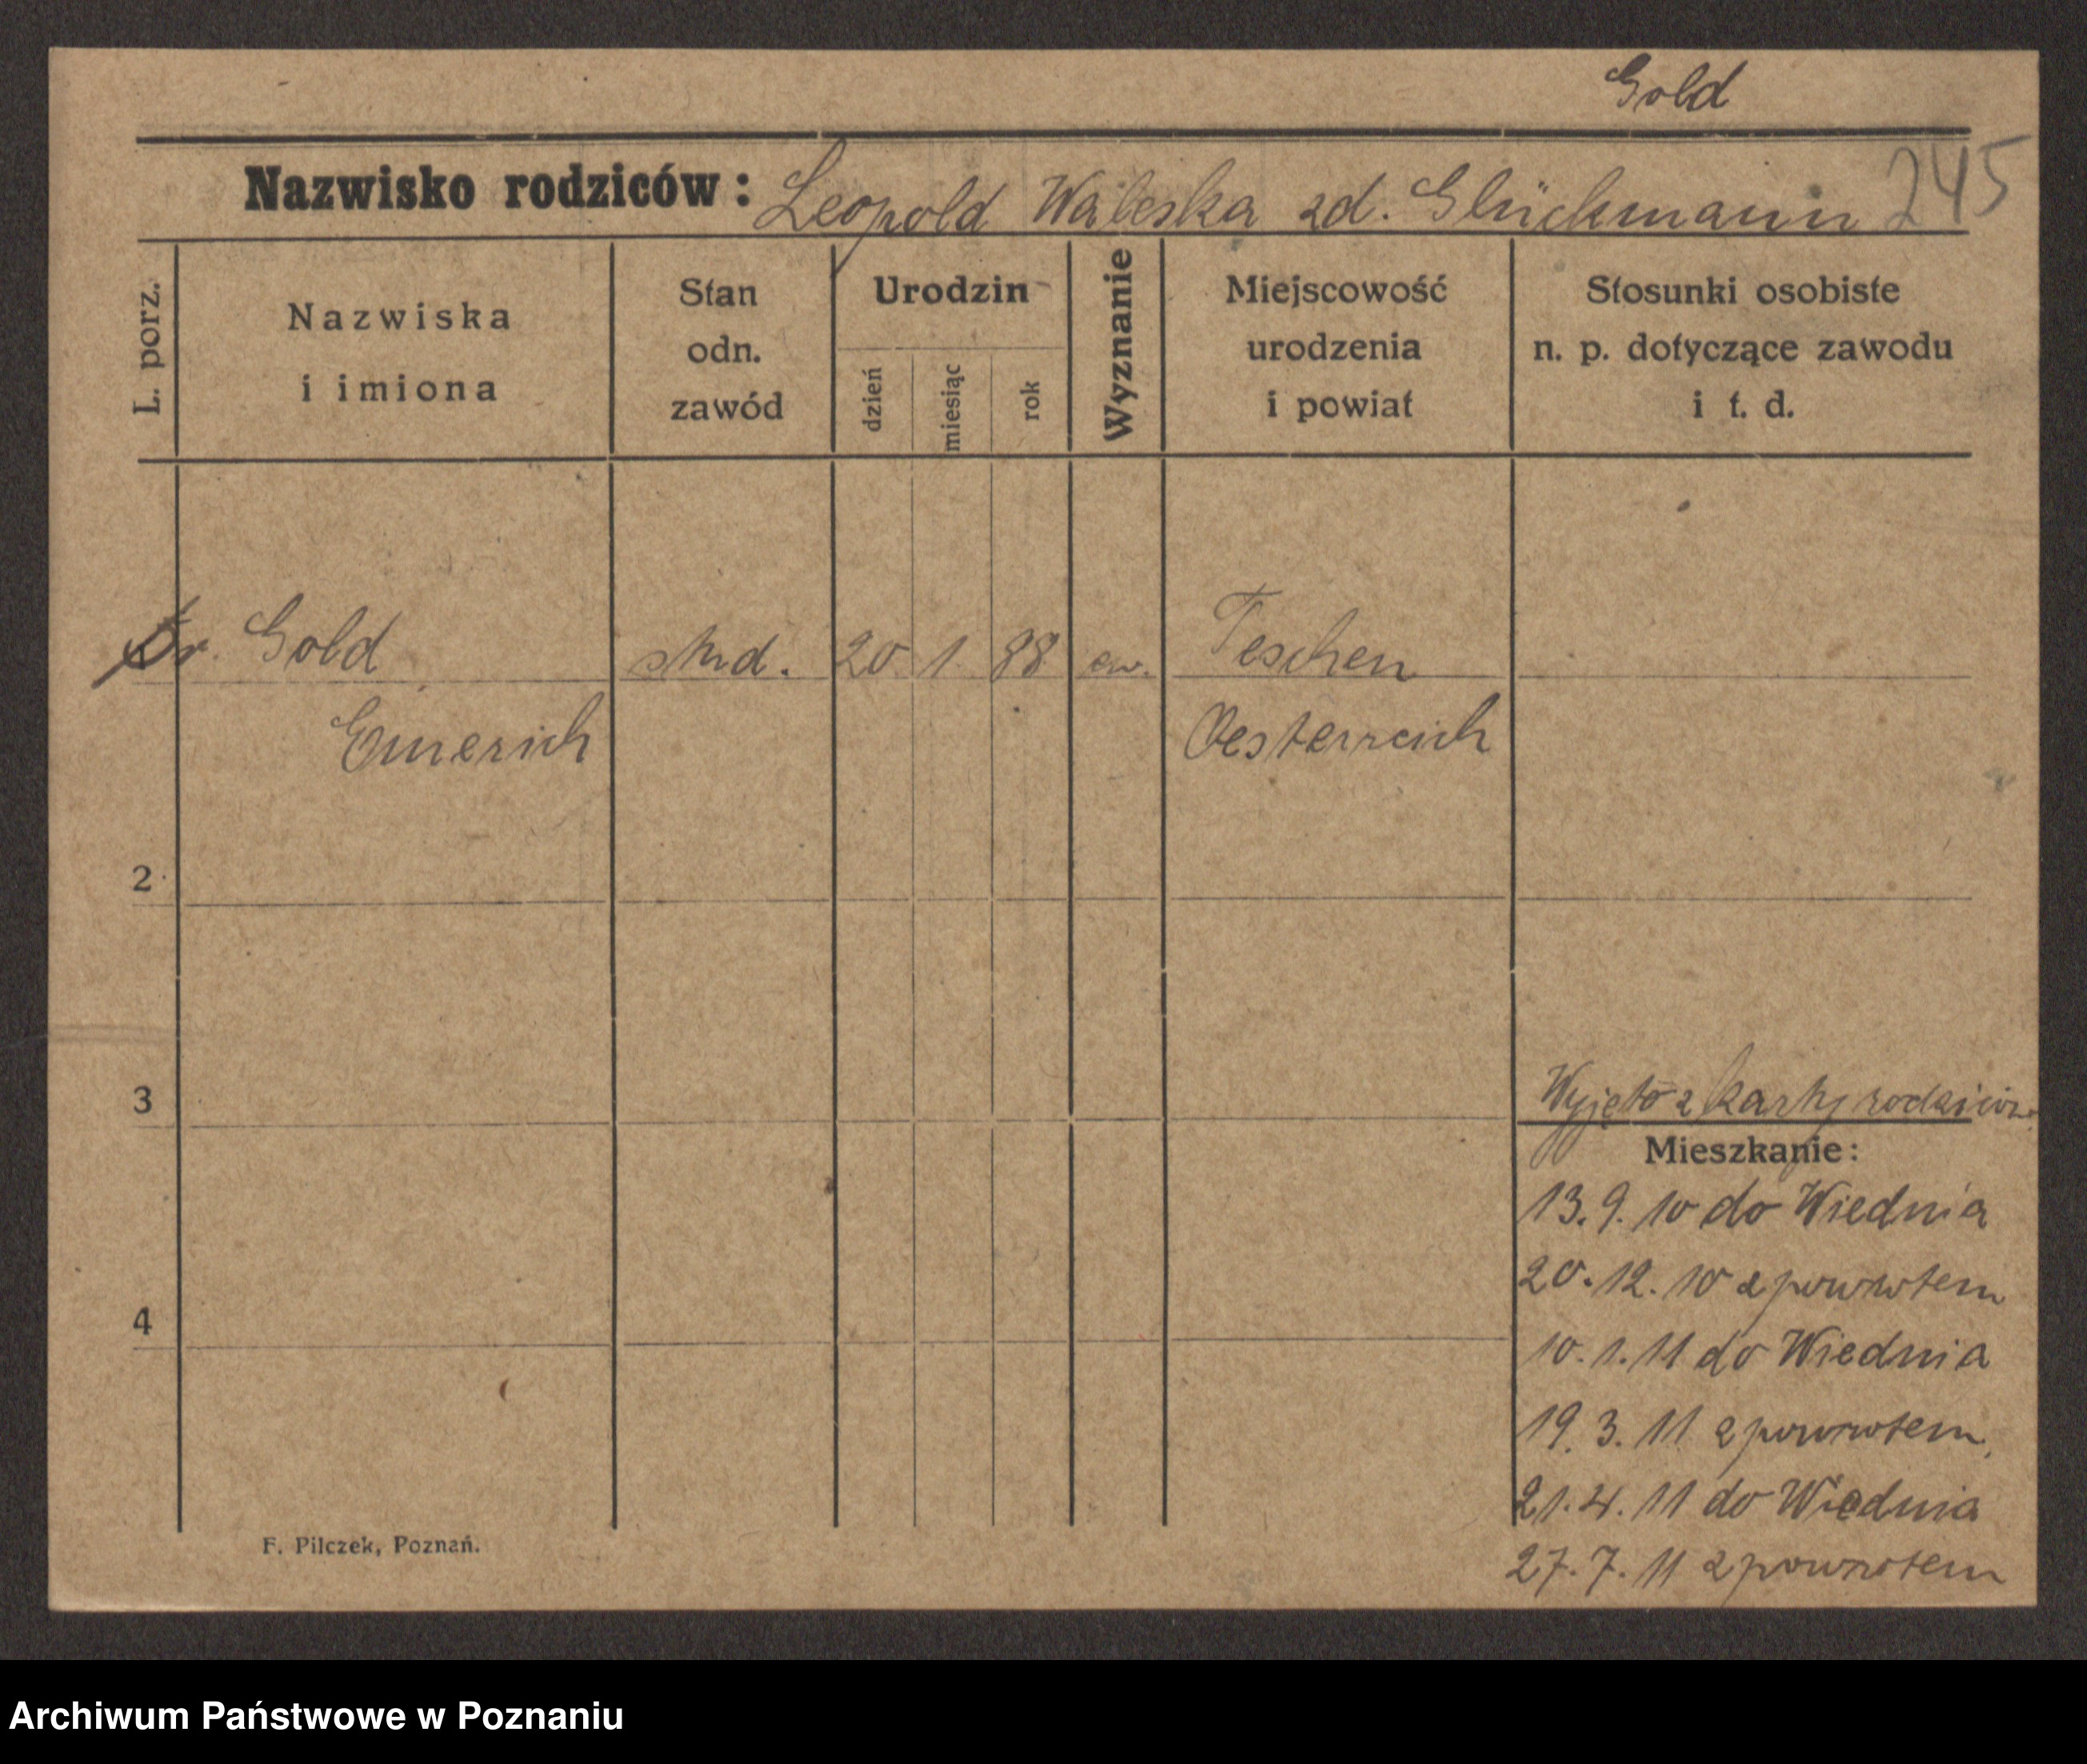 Gold
Nazwisko rodziców: Leopold Waleska zd. Glückmann 245
L. porz.
Nazwiska
i imiona
Stan
odn.
zawód
Urodzin
dzień
miesiąc
rok
Wyznanie
Miejscowość
urodzenia
i powiat
Stosunki osobiste
n. p. dotyczące zawodu
i t. d.
Dr. Gold stud. 20. 1. 88 ew. Teschen
Emerich Oesterreich
2
3
Wyjęto z karty rodziców
Mieszkanie:
13. 9. 10 do Wiednia
20. 12. 10 z powrotem
4
10. 1. 11 do Wiednia
19. 3. 11 z powrotem
21. 4. 11 do Wiednia
27. 7. 11 z powrotem
F. Pilczek, Poznań.
Archiwum Państwowe w Poznaniu